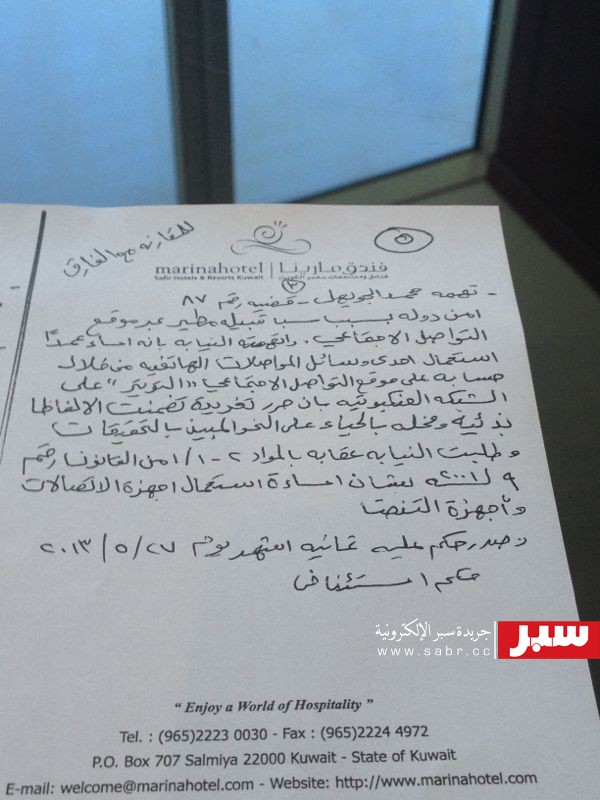 للمقارنة مع الفارق
marinahotel | فندق مارينا
Safir Hotels & Resorts Kuwait فنادق ومنتجعات سفير الكويت
٣
- تهمه محمد الجويهل - قضيه رقم ٨٧
امن دوله بسبب سب قبيله مطير عبر موقع
التواصل الاجتماعي. واتهمته النيابه بانه اساء عمداً
استعمال احدى وسائل المواصلات الهاتفيه من خلال
حسابه على موقع التواصل الاجتماعي "التويتر" على
الشبكه العنكبوتيه بان حرر تغريدة تضمنت الالفاظا
بذئية ومخله بالحياء على النحو المبين بالتحقيقات
وطلبت النيابه عقابه بالمواد ٢-١/١ من القانون رقم
٩ لـ ٢٠٠١ بشان اساءة استعمال اجهزة الاتصالات
وأجهزة التنصت
وصدر حكم عليه ثمانيه اشهر يوم ٢٧/٥/٢٠١٣
حكم استئنافي
جريدة سبر الإلكترونية
www.sabr.cc
سبر
" Enjoy a World of Hospitality "
Tel. : (965)2223 0030 - Fax : (965)2224 4972
P.O. Box 707 Salmiya 22000 Kuwait - State of Kuwait
E-mail: welcome@marinahotel.com - Website: http://www.marinahotel.com